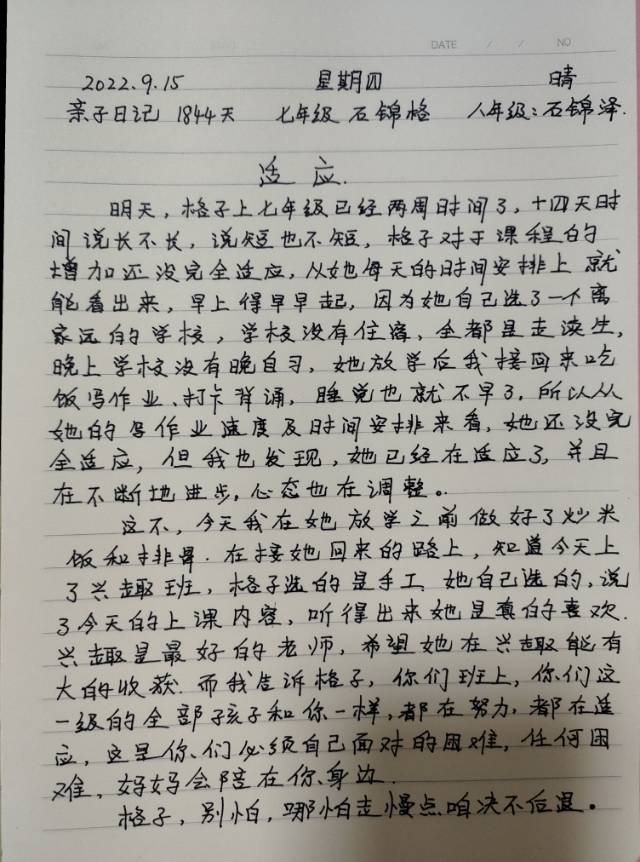 DATE / / NO
2022.9.15 星期四 晴
亲子日记 1844天 七年级 石锦格 八年级:石锦泽.
适应.
明天,格子上七年级已经两周时间了,十四天时
间说长不长,说短也不短,格子对于课程的
增加还没完全适应,从她每天的时间安排上就
能看出来,早上得早早起,因为她自己选了一个离
家远的学校,学校没有住宿,全都是走读生,
晚上学校没有晚自习,她放学后我接回来吃
饭写作业、打卡背诵,睡觉也就不早了,所以从
她的写作业速度及时间安排来看,她还没完
全适应,但我也发现,她已经在适应了,并且
在不断地进步,心态也在调整。
这不,今天我在她放学之前做好了炒米
饭和排骨.在接她回来的路上,知道今天上
了兴趣班,格子选的是手工.她自己选的,说
了今天的上课内容,听得出来她是真的喜欢.
兴趣是最好的老师,希望她在兴趣能有
大的收获.而我告诉格子,你们班上,你们这
一级的全部孩子和你一样,都在努力,都在适
应,这是你们必须自己面对的困难,任何困
难,妈妈会陪在你身边.
格子,别怕,哪怕走慢点咱决不后退。